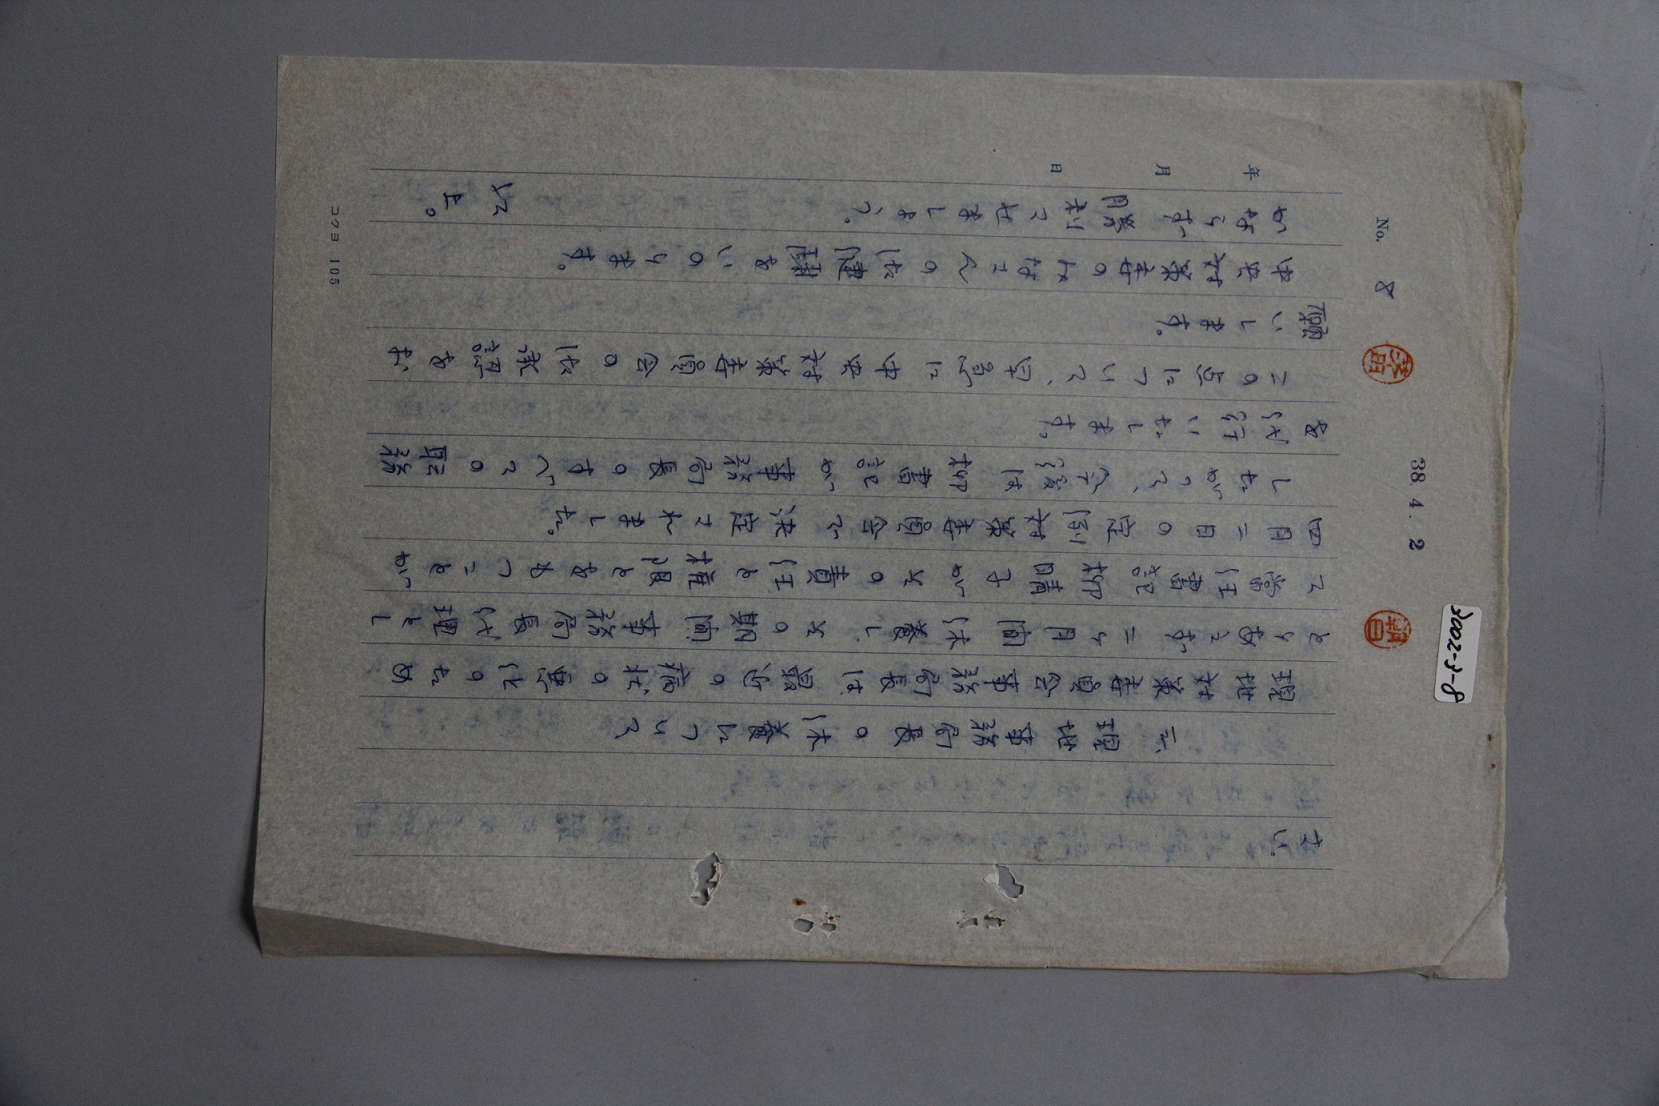 No. 8
38 4. 2
年 月 日
二、現地事務局長の休養について
現地対策委員会事務局長は、の病状の悪化のため
とりあえず二ヶ月間休養し、その期間事務局長代理とし
て常任書記柳晴子がその責任と権限とをもつことが
四月二日の定例対策委員会で決定されました。
したがって、今後は柳書記が事務局長のすべての職務
を代行いたします。
この点について、早急に中央対策委員会の御承認をお
願いします。
中央対策委のみなさんの御健闘をいのります。
かならず勝利させましょう。
以上。
コクヨ 105
2002-3-8